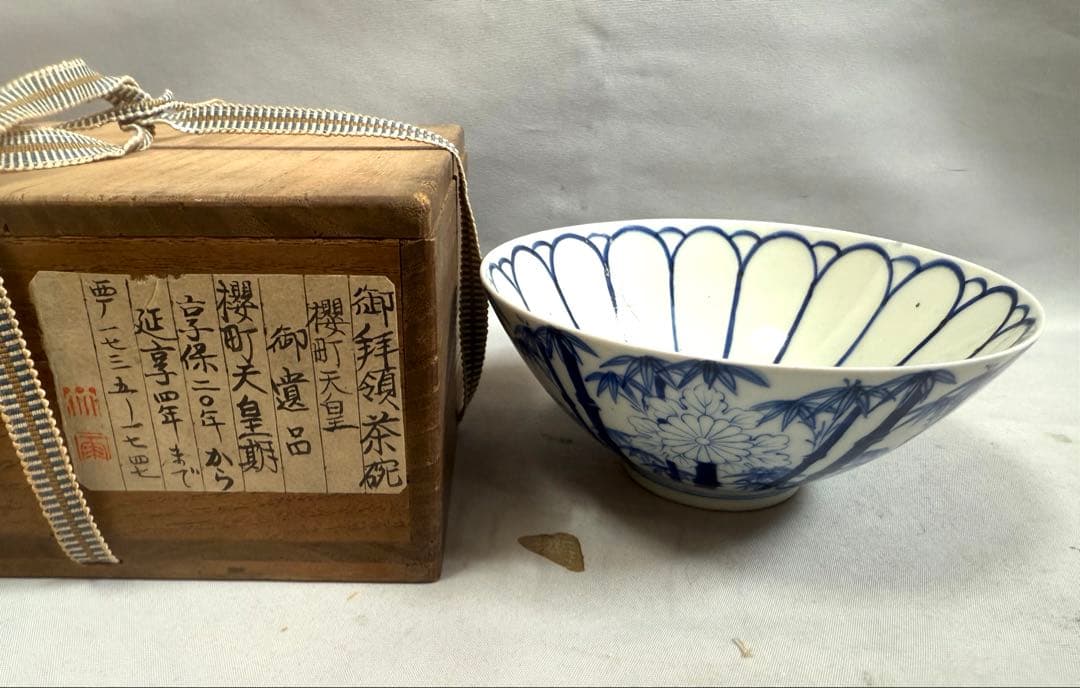 御拝領茶碗
櫻町天皇
御遺品
櫻町天皇期
享保二〇年から
延享四年まで
西一七三五ー一七四七